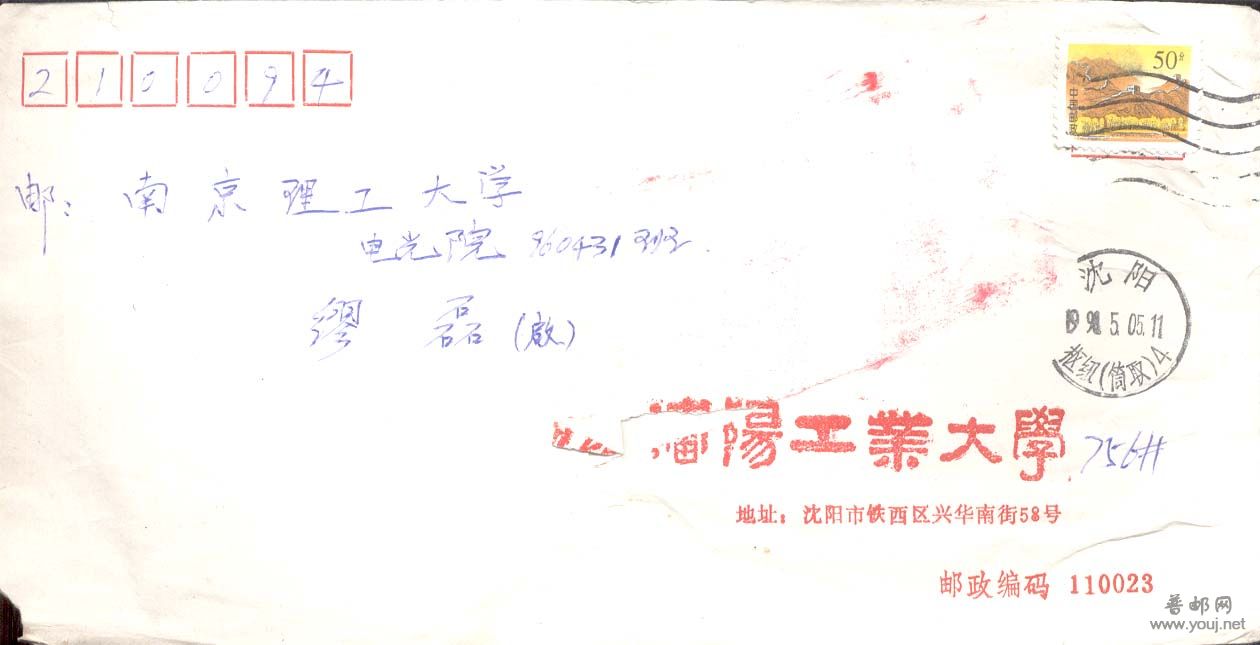 210094
50分
中国邮政
邮: 南京理工大学
电光院 960431班
缪磊(啟)
沈阳
5.05.11
枢纽(筒取)4
瀋陽工業大學 756#
地址: 沈阳市铁西区兴华南街58号
邮政编码 110023
普邮网
www.youj.net